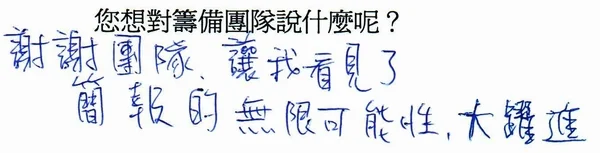 您想對籌備團隊說什麼呢？
謝謝團隊、讓我看見了
簡報的無限可能性，大躍進